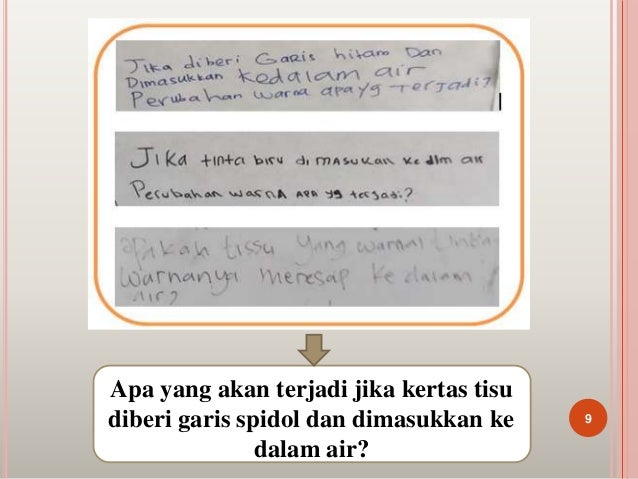 Jika diberi Garis hitam Dan
Dimasukkan kedalam air
Perubahan warna apa yg Terjadi?
Jika tinta biru di masukan ke dlm air
Perubahan warna apa yg terjadi?
apakah tissu yang warnai tinta
warnanya meresap ke dalam
air?
Apa yang akan terjadi jika kertas tisu
diberi garis spidol dan dimasukkan ke
dalam air?
9